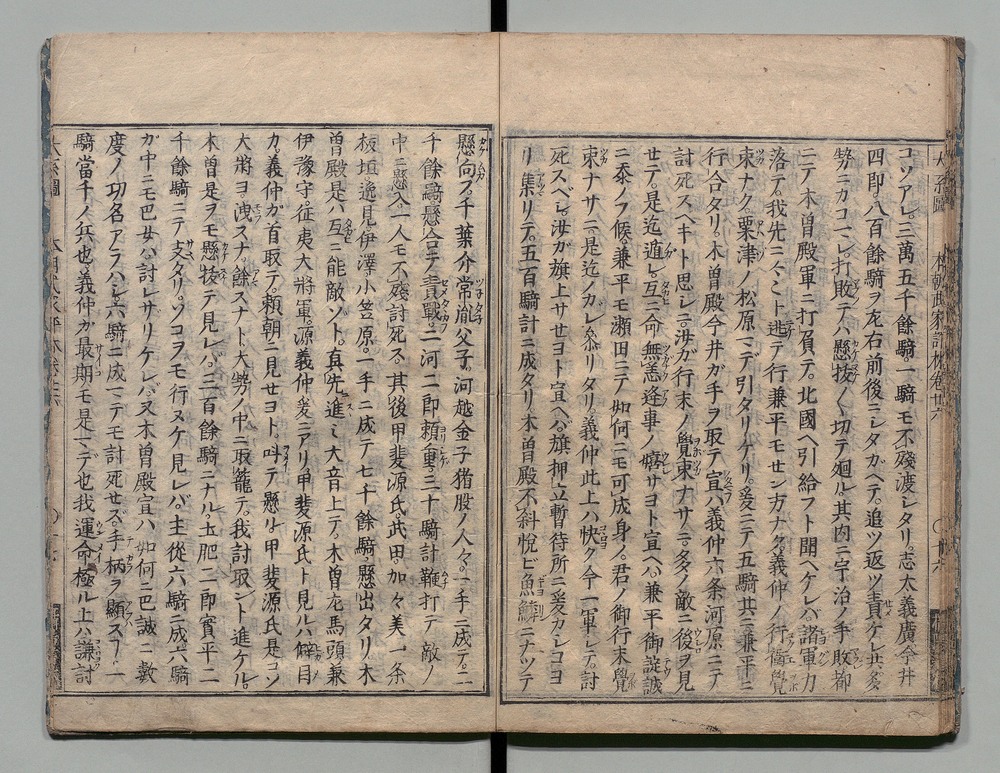 コソアレ。三萬五千餘騎一騎モ不殘渡シタリ。志太義廣今井
四郎、八百餘騎ヲ左右前後ニシタガヘテ。追ツ返ツ責ケレ共多
勢ニカコマレ。打敗テハ懸拔〱切テ廻ル。其内ニ宇治ノ手敗都
ニテ木曽殿軍ニ打負テ。北國ヘ引給フト聞ヘケレバ。諸軍力
落テ。我先ニスヽミト逃テ行兼平モセン方ナク。義仲ノ行衛覺
束ナク粟津ノ松原マデ引タリケリ。爰ニテ五騎共ニ兼平ニ
行合タリ。木曽殿今井ガ手ヲ取テ宣ハ義仲六条河原ニテ
討死スヘキト思シニ。汝ガ行末ノ覺束ナサニ。多ノ敵ニ後ヲ見
セテ。是迄遁レ。互ニ命無恙逢事ノ嬉サヨト宣ヘハ。兼平御諚誠
ニ忝ノフ候。兼平モ瀬田ニテ如何ニモ可成身ノ。君ノ御行末覺
束ナサニ。是迄ノカレ參リタリ。義仲此上ハ快ク今一軍シテ。討
死スベシ。汝ガ旗上サセヨト宣ヘハ。旗押立暫待所ニ爰カシコヨ
リ集リテ。五百騎計ニ成タリ。木曽殿不斜悦ビ魚鱗ニナツテ
懸向フ。千葉介常胤父子。河越金子猪股ノ人々。一手ニ成テ。二
千餘騎懸合テ責戰。二河二郎頼重。三十騎計鞭打テ敵ノ
中ニ懸入一人モ不殘討死ス。其後甲斐源氏。武田。加々美一条
板垣逸見伊澤小笠原。一手ニ成テ七千餘騎。懸出タリ木
曽殿是ハ互ニ能敵ゾト。真先進ミ大音上テ。木曽左馬頭兼
伊豫守。征夷大將軍源義仲爰ニアリ甲斐源氏ト見ルハ僻目
カ。義仲ガ首取テ。頼朝ニ見セヨト。呼テ懸ル。甲斐源氏是コソ
大將ヨ洩スナ。餘スナト大勢ノ中ニ取籠テ。我討取ント進ケル。
木曽是ヲモ懸拔テ見レバ。三百餘騎ニナル。土肥二郎實平二
千餘騎ニテ支タリ。ソコヲモ行ヌケ見レバ。主從六騎ニ成。六騎
ガ中ニモ巴女ハ討レサリケレバ又木曽殿宣ハ如何ニ巴誠ニ數
度ノ功名アラハシ。六騎ニ成マテモ討死セズ。手柄ヲ顯ス事一
騎當千ノ兵也。義仲カ最期モ是マデ也我運命極ル上ハ謙討